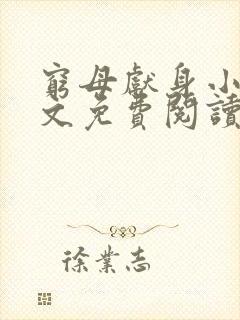 窮母獻身小
文免費閱讀
徐業志